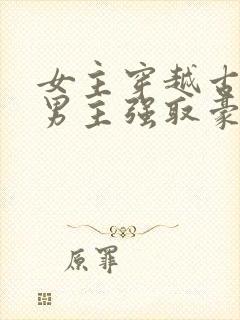 女主穿越古
男主强取豪
原罪